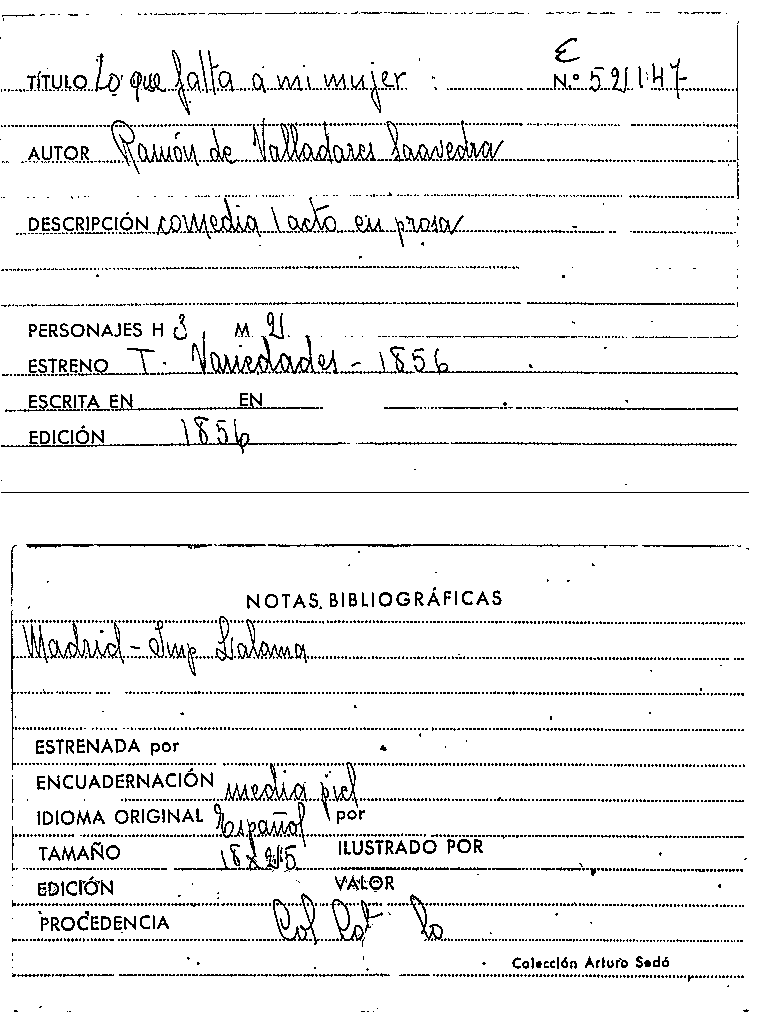 E
TÍTULO Lo que falta a mi mujer . N.º 52147
AUTOR Ramón de Valladares Saavedra
DESCRIPCIÓN comedia 1 acto en prosa
PERSONAJES H 3 M 2
ESTRENO T. Variedades - 1856
ESCRITA EN EN
EDICIÓN 1856
NOTAS BIBLIOGRÁFICAS
Madrid - Imp Lalama
ESTRENADA por
ENCUADERNACIÓN media piel
IDIOMA ORIGINAL Español por
TAMAÑO ILUSTRADO POR
EDICIÓN VALOR
PROCEDENCIA Col Cot
Colección Arturo Sedó